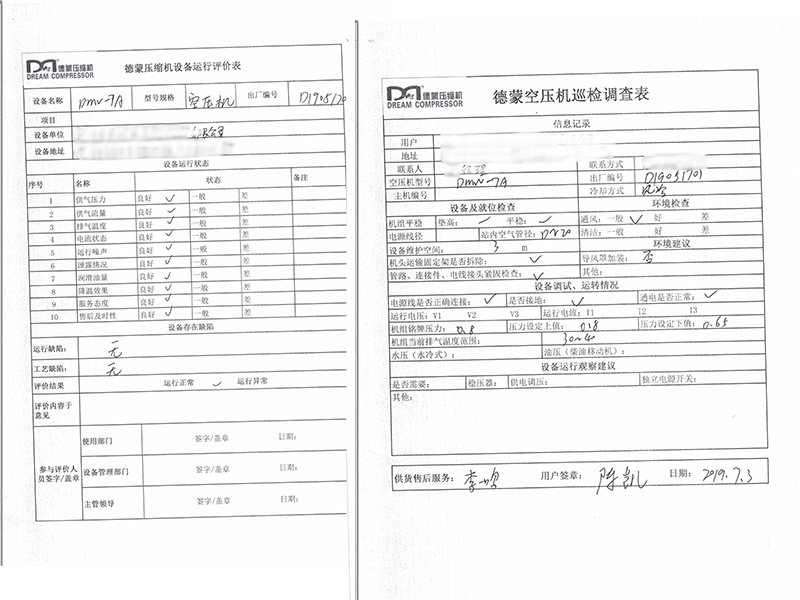 德蒙压缩机
DREAM COMPRESSOR
德蒙压缩机设备运行评价表
设备名称 DMV-7A 型号规格 空压机 出厂编号 D1905170
项目
设备单位
设备地址
设备运行状态
序号 名称 状态 备注
1 供气压力 良好 ✓ 一般 差
2 供气流量 良好 ✓ 一般 差
3 排气温度 良好 ✓ 一般 差
4 电流状态 良好 ✓ 一般 差
5 运行噪声 良好 ✓ 一般 差
6 泄露情况 良好 ✓ 一般 差
7 润滑油量 良好 ✓ 一般 差
8 降温效果 良好 ✓ 一般 差
9 服务态度 良好 ✓ 一般 差
10 售后及时性 良好 ✓ 一般 差
设备存在缺陷
运行缺陷： 无
工艺缺陷： 无
评价结果 运行正常 ✓ 运行异常
评价内容于
意见
参与评价人
员签字/盖章
使用部门 签字/盖章 日期：
设备管理部门 签字/盖章 日期：
主管领导 签字/盖章 日期：
德蒙压缩机
DREAM COMPRESSOR
德蒙空压机巡检调查表
信息记录
用户
地址
联系人 经理 联系方式
空压机型号 DMV-7A 出厂编号 D19051701
主机编号 冷却方式 风冷
设备及就位检查 环境检查
机组平稳 垫高： ✓ 平稳： ✓ 通风：一般 ✓ 好 差
电源线径 站内空气管径： DN20 清洁：一般 好 差
设备维护空间： 3 m 环境建议
机头运输固定架是否拆除： ✓ 导风罩加装： 否
管路、连接件、电线接头紧固检查： ✓ 其他：
设备调试、运转情况
电源线是否正确连接： ✓ 是否接地： ✓ 通电是否正常： ✓
运行电压：V1 V2 V3 运行电流：I1 I2 I3
机组铭牌压力： 0.8 压力设定上值： 0.8 压力设定下值： 0.65
机组当前排气温度范围：
水压（水冷式）： 油压（柴油移动机）：
设备运行观察建议
是否需要： 稳压器： 供电调压： 独立电源开关：
其他：
供货售后服务： 用户签章： 陈凯 日期： 2019.7.3